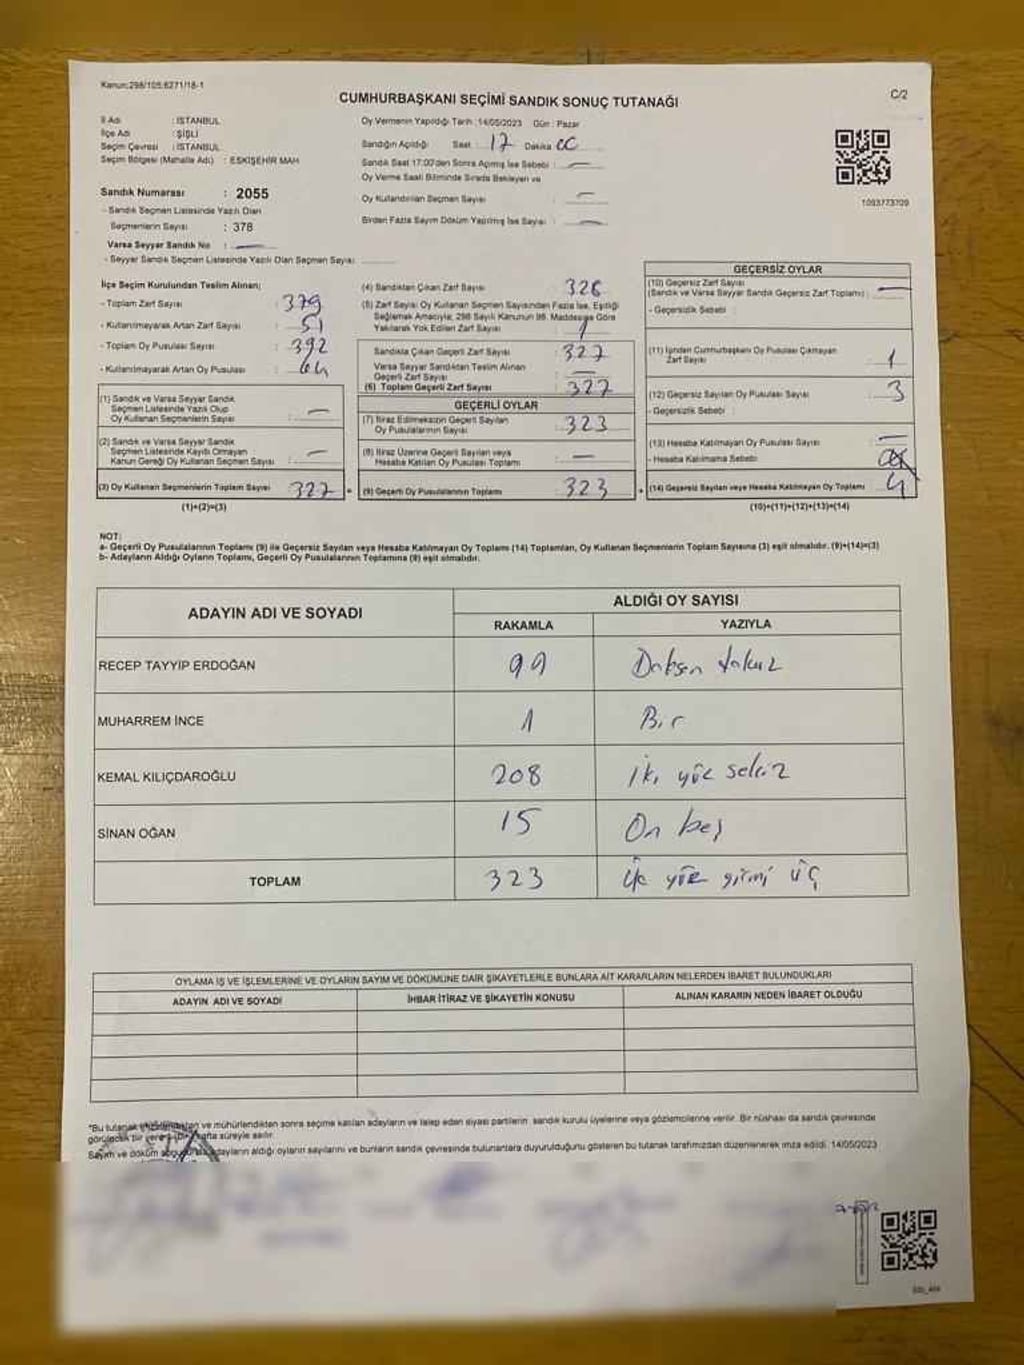 Kanun:298/105;6271/18-1
C/2
CUMHURBAŞKANI SEÇİMİ SANDIK SONUÇ TUTANAĞI
İl Adı : İSTANBUL
İlçe Adı : ŞİŞLİ
Seçim Çevresi : İSTANBUL
Seçim Bölgesi (Mahalle Adı) : ESKİŞEHİR MAH
Sandık Numarası : 2055
- Sandık Seçmen Listesinde Yazılı Olan
Seçmenlerin Sayısı : 378
Varsa Seyyar Sandık No : —
- Seyyar Sandık Seçmen Listesinde Yazılı Olan Seçmen Sayısı :
Oy Vermenin Yapıldığı Tarih : 14/05/2023 Gün : Pazar
Sandığın Açıldığı Saat : 17 Dakika 00
Sandık Saat 17:00'den Sonra Açılmış İse Sebebi : —
Oy Verme Saati Bitiminde Sırada Bekleyen ve
Oy Kullandırılan Seçmen Sayısı : —
Birden Fazla Sayım Döküm Yapılmış İse Sayısı : —
1093773709
İlçe Seçim Kurulundan Teslim Alınan;
- Toplam Zarf Sayısı : 379
- Kullanılmayarak Artan Zarf Sayısı : 51
- Toplam Oy Pusulası Sayısı : 392
- Kullanılmayarak Artan Oy Pusulası : 64
(1) Sandık ve Varsa Seyyar Sandık
Seçmen Listesinde Yazılı Olup
Oy Kullanan Seçmenlerin Sayısı : —
(2) Sandık ve Varsa Seyyar Sandık
Seçmen Listesinde Kayıtlı Olmayan
Kanun Gereği Oy Kullanan Seçmen Sayısı : —
(3) Oy Kullanan Seçmenlerin Toplam Sayısı : 327
(1)+(2)=(3)
(4) Sandıktan Çıkan Zarf Sayısı : 328
(5) Zarf Sayısı Oy Kullanan Seçmen Sayısından Fazla İse, Eşitliği
Sağlamak Amacıyla; 298 Sayılı Kanunun 98. Maddesine Göre
Yakılarak Yok Edilen Zarf Sayısı : 1
Sandıkta Çıkan Geçerli Zarf Sayısı : 327
Varsa Seyyar Sandıktan Teslim Alınan
Geçerli Zarf Sayısı : —
(6) Toplam Geçerli Zarf Sayısı : 327
GEÇERLİ OYLAR
(7) İtiraz Edilmeksizin Geçerli Sayılan
Oy Pusulalarının Sayısı : 323
(8) İtiraz Üzerine Geçerli Sayılan veya
Hesaba Katılan Oy Pusulası Toplamı : —
(9) Geçerli Oy Pusulalarının Toplamı : 323
GEÇERSİZ OYLAR
(10) Geçersiz Zarf Sayısı
(Sandık ve Varsa Seyyar Sandık Geçersiz Zarf Toplamı) : —
- Geçersizlik Sebebi :
(11) İçinden Cumhurbaşkanı Oy Pusulası Çıkmayan
Zarf Sayısı : 1
(12) Geçersiz Sayılan Oy Pusulası Sayısı : 3
- Geçersizlik Sebebi :
(13) Hesaba Katılmayan Oy Pusulası Sayısı : —
- Hesaba Katılmama Sebebi :
(14) Geçersiz Sayılan veya Hesaba Katılmayan Oy Toplamı : 4
(10)+(11)+(12)+(13)=(14)
NOT:
a- Geçerli Oy Pusulalarının Toplamı (9) ile Geçersiz Sayılan veya Hesaba Katılmayan Oy Toplamı (14) Toplamları, Oy Kullanan Seçmenlerin Toplam Sayısına (3) eşit olmalıdır. (9)+(14)=(3)
b- Adayların Aldığı Oyların Toplamı, Geçerli Oy Pusulalarının Toplamına (9) eşit olmalıdır.
ADAYIN ADI VE SOYADI
ALDIĞI OY SAYISI
RAKAMLA YAZIYLA
RECEP TAYYİP ERDOĞAN 99 Doksan dokuz
MUHARREM İNCE 1 Bir
KEMAL KILIÇDAROĞLU 208 iki yüz sekiz
SİNAN OĞAN 15 On beş
TOPLAM 323 üç yüz yirmi üç
OYLAMA İŞ VE İŞLEMLERİNE VE OYLARIN SAYIM VE DÖKÜMÜNE DAİR ŞİKAYETLERLE BUNLARA AİT KARARLARIN NELERDEN İBARET BULUNDUKLARI
ADAYIN ADI VE SOYADI İHBAR İTİRAZ VE ŞİKAYETİN KONUSU ALINAN KARARIN NEDEN İBARET OLDUĞU
*Bu tutanak ve mühürlendikten sonra seçime katılan adayların ve talep eden siyasi partilerin sandık kurulu üyelerine veya gözlemcilerine verilir. Bir nüshası da sandık çevresinde
görülecek bir yere bir hafta süreyle asılır.
Sayım ve döküm adayların aldığı oyların sayılarını ve bunların sandık çevresinde bulunanlara duyurulduğunu gösteren bu tutanak tarafımızdan düzenlenerek imza edildi. 14/05/2023